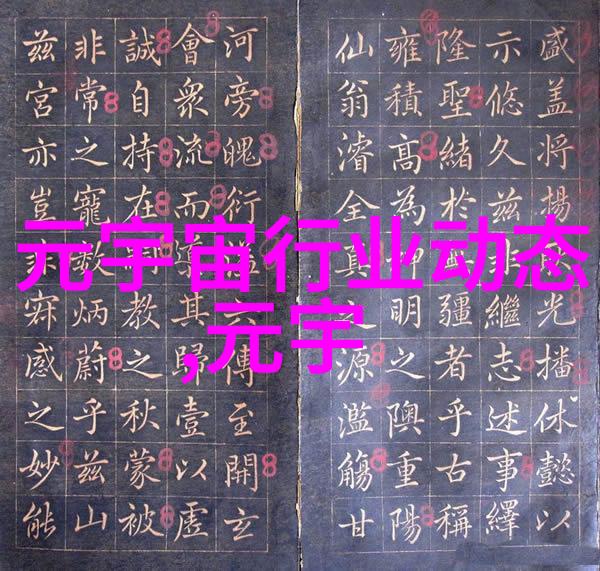 元宇宙行业动态
,元宇
盛盖将揚光播休懿以
示悠久茲非繼志述事繹
隆聖緒於疆者乎古稱
雍積高為神明之隩重陽
仙翁濬全真之源濫觴甘
河旁魄衍六傳至開玄
會眾流而導其歸壹以虛
誠自持在教之秋蒙被
非常之寵數炳蔚乎茲山
茲宮亦豈非感之妙能